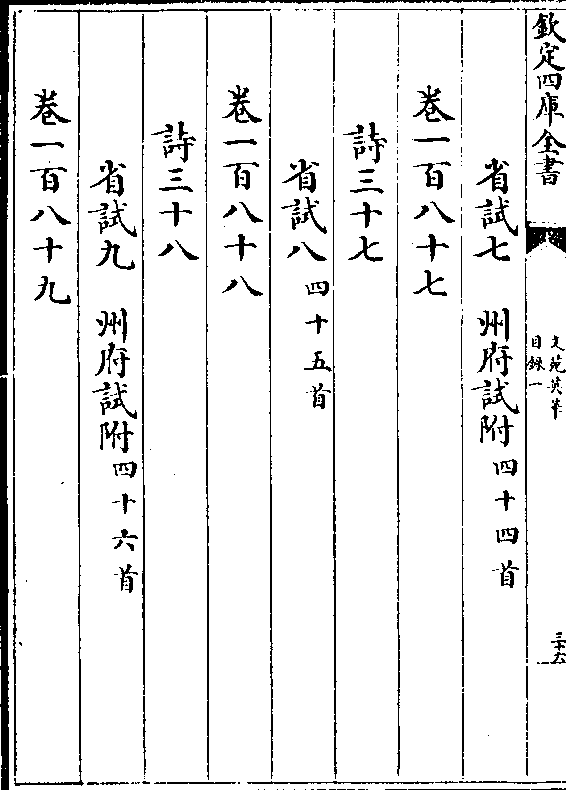 欽定四庫全書
文苑英華
目録一
三十六
省試七 州府試附四十四首
卷一百八十七
詩三十七
省試八四十五首
卷一百八十八
詩三十八
省試九 州府試附四十六首
卷一百八十九